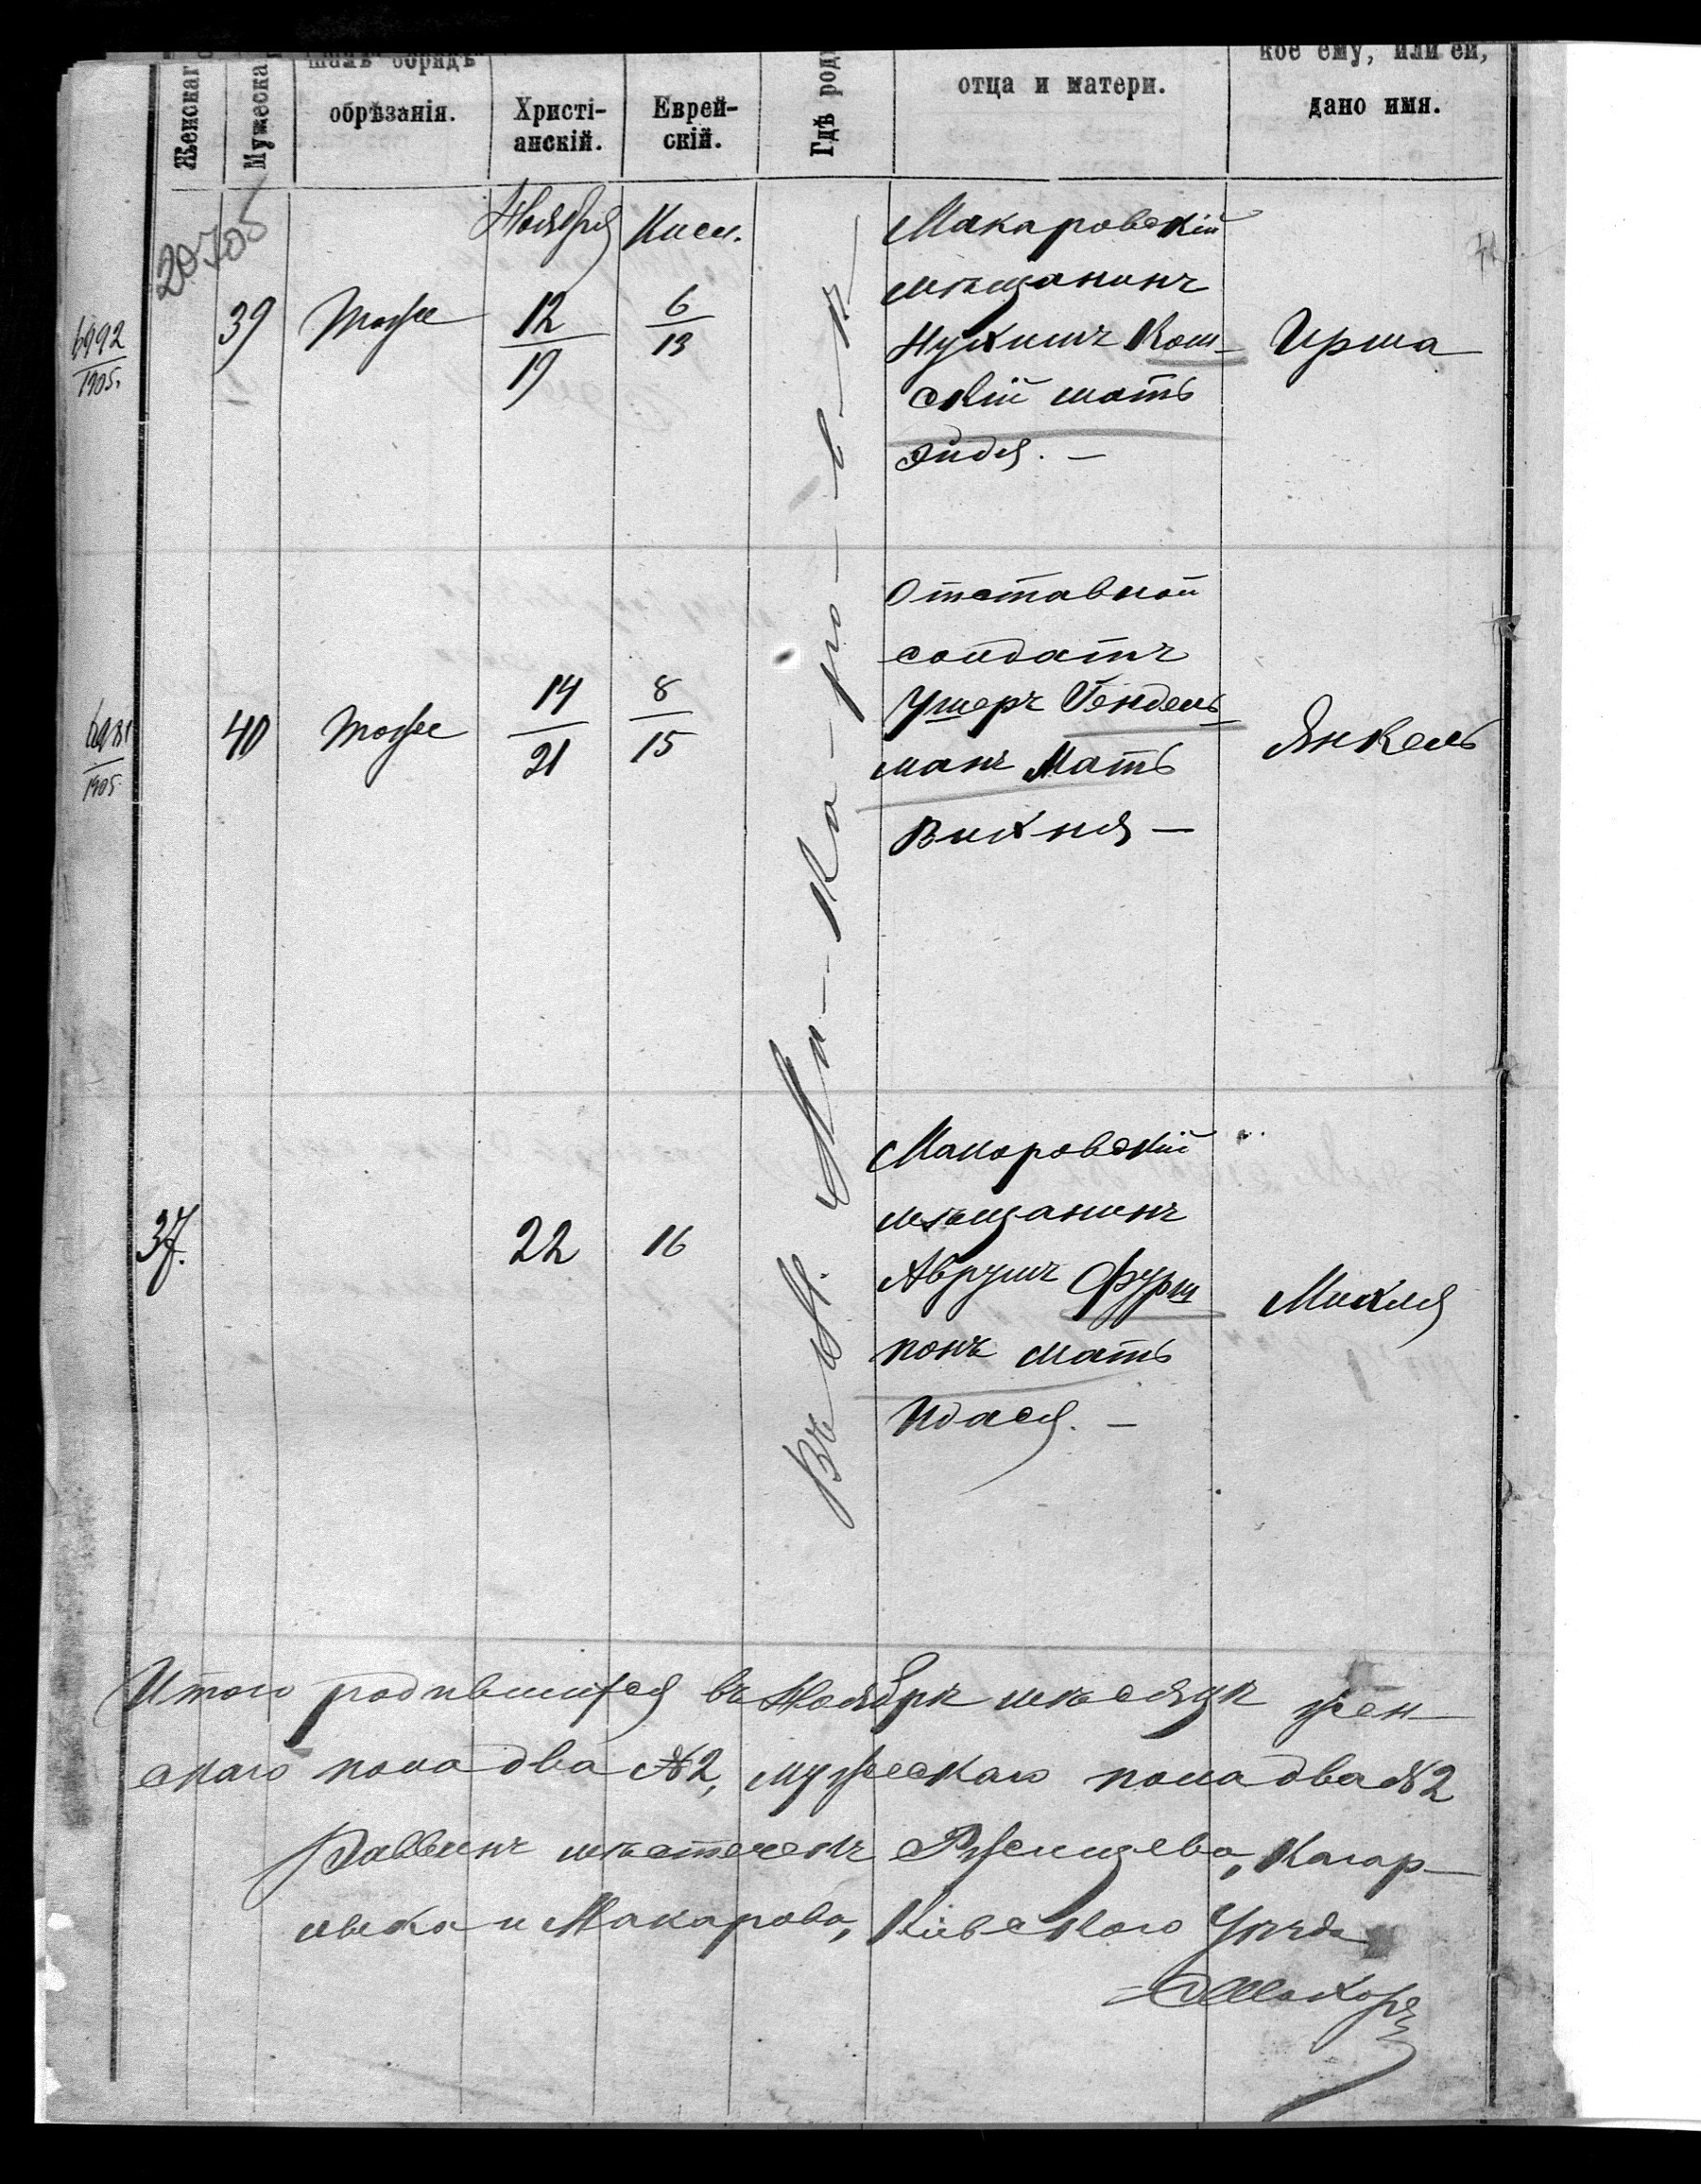 Женскаго
Мужеска
шалъ обрядъ
обрѣзанія.
Христі-
анскій.
Еврей-
скій.
Гдѣ род
отца и матери.
кое ему, или ей,
дано имя.
20705
Ноября
Кисл.
6992
1905.
39
тоже
12
19
6
13
Макаровскій
мѣщанинъ
Нухимъ Кош-
скій мать
Эйдя. —
Ирша
1905
40
тоже
14
21
8
15
Отставной
солдатъ
Ушеръ Гендель
манъ Мать
Вихня —
Янкель
37.
22
16
Макаровскій
мѣщанинъ
Аврумъ Фурш
Мать
Идася. —
Михля
Въ М. Ма-ка-ро-в-ѣ
Итого родившихся въ Ноябрѣ мѣсяцѣ жен-
скаго пола два №2, мужескаго пола два №2
Раввинъ мѣстечекъ Ржищева, Кагар-
лыка и Макарова, Кіевскаго Уѣзда